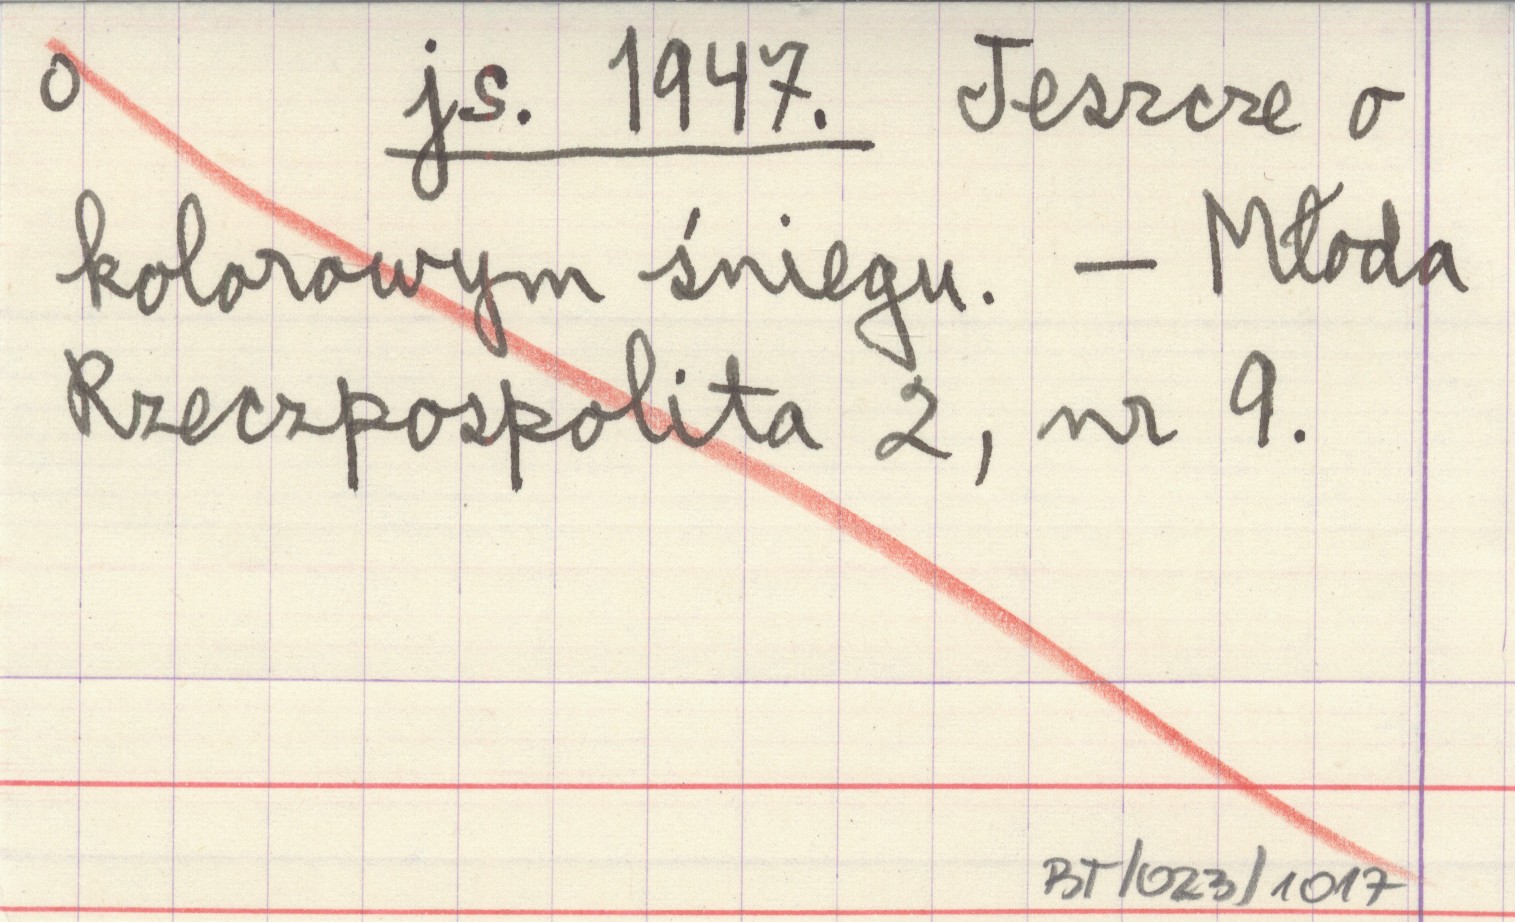 o js. 1947. Jeszcze o
kolorowym śniegu. — Młoda
Rzeczpospolita 2, nr 9.
BT/023/1017